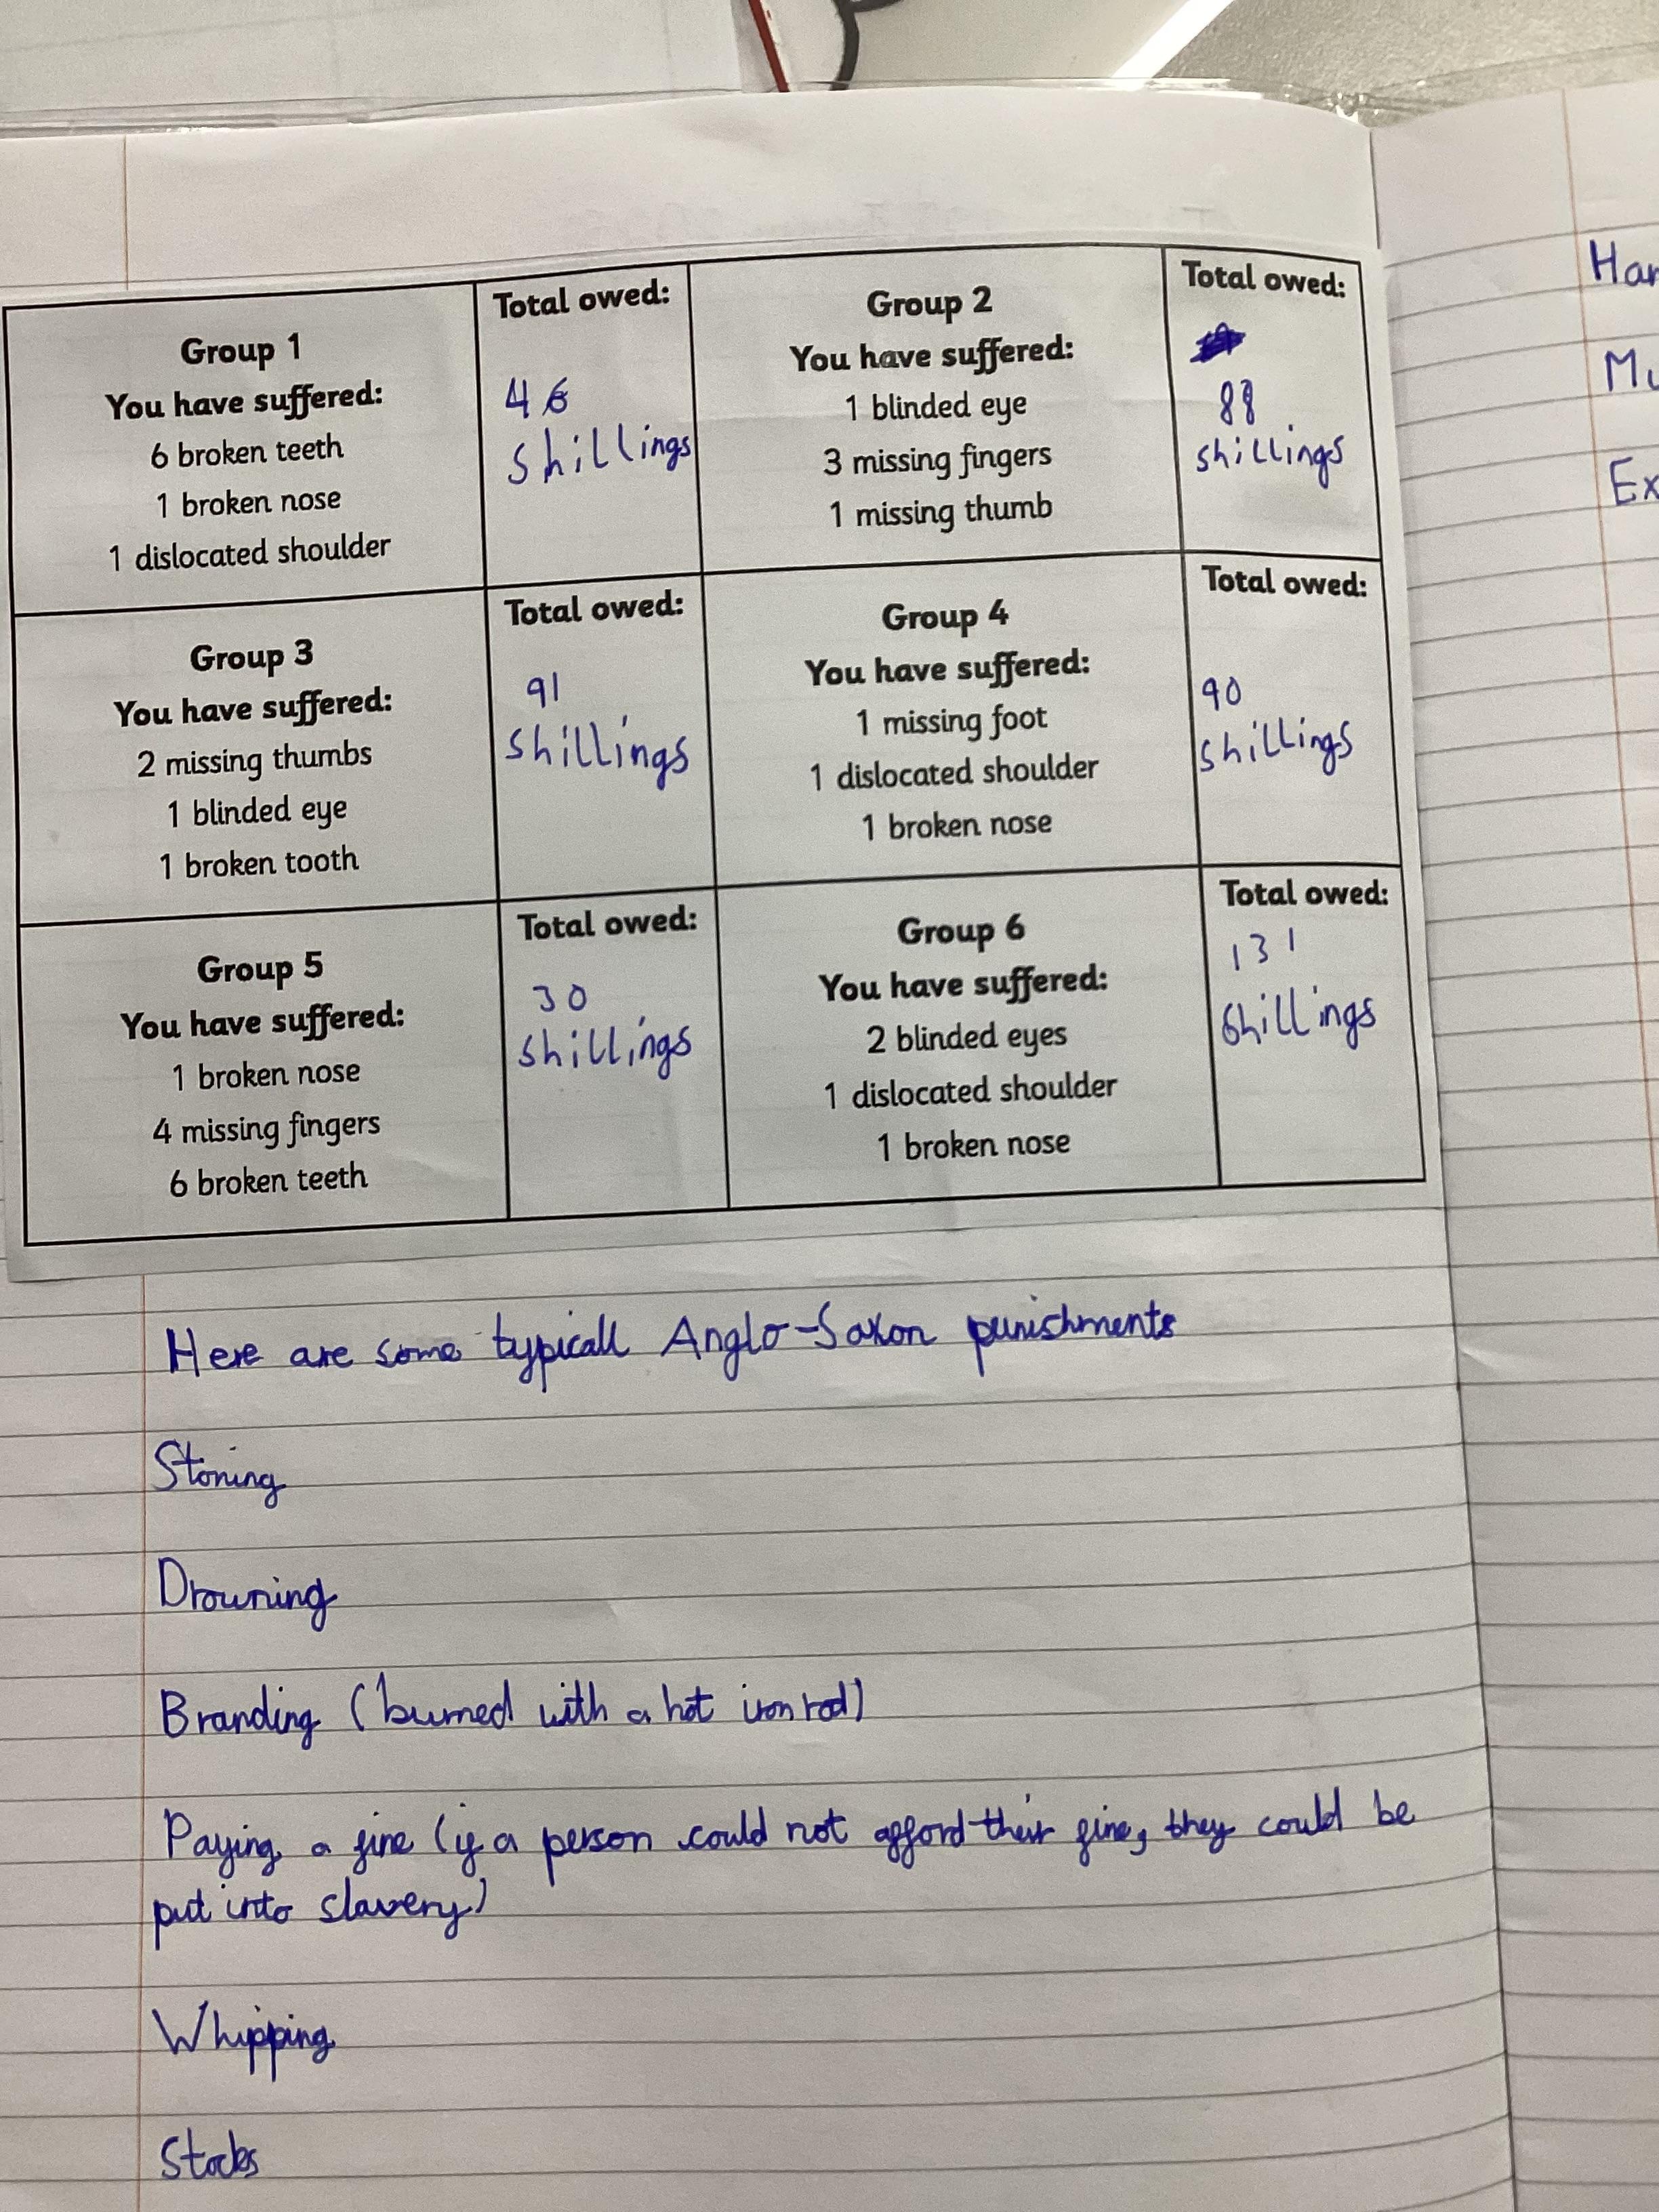 Group 1
You have suffered:
6 broken teeth
1 broken nose
1 dislocated shoulder
Total owed:
46
shillings
Group 2
You have suffered:
1 blinded eye
3 missing fingers
1 missing thumb
Total owed:
88
shillings
Group 3
You have suffered:
2 missing thumbs
1 blinded eye
1 broken tooth
Total owed:
91
shillings
Group 4
You have suffered:
1 missing foot
1 dislocated shoulder
1 broken nose
Total owed:
90
shillings
Group 5
You have suffered:
1 broken nose
4 missing fingers
6 broken teeth
Total owed:
30
shillings
Group 6
You have suffered:
2 blinded eyes
1 dislocated shoulder
1 broken nose
Total owed:
131
shillings
Here are some typicall Anglo-Saxon punishments
Stoning
Drowning
Branding (burned with a hot iron rod)
Paying a fine (if a person could not afford their fine, they could be
put into slavery)
Whipping
Stocks